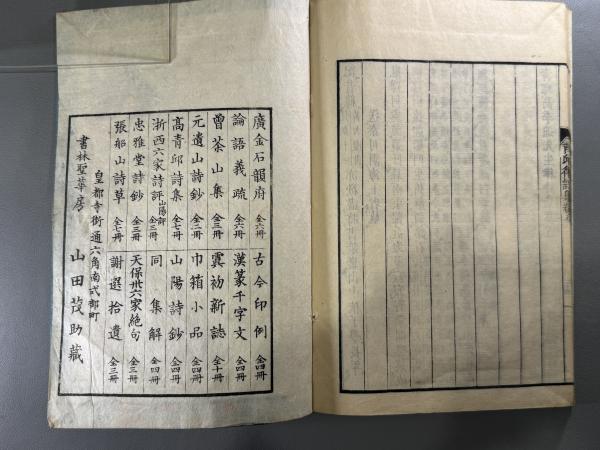 廣金石韻府 全六冊 古今印例 全四冊
論語義疏 全六冊 漢篆千字文 全四冊
曾茶山集 全三冊 虞初新誌 全十冊
元遺山詩鈔 全二冊 巾箱小品 全四冊
高青邱詩集 全七冊 山陽詩鈔 全四冊
浙西六家詩評 山陽評 全三冊 同集解 全四冊
忠雅堂詩鈔 全三冊 天保卅六家絶句 全三冊
張船山詩草 全七冊 謝選拾遺 全三冊
皇都寺街通六角南式部町
書林聖華房 山田茂助藏